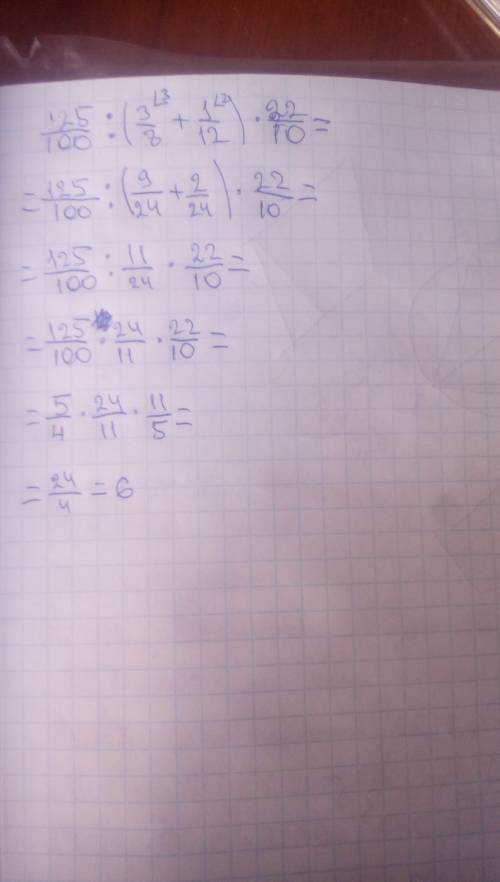 125/100 : (3/8⌊3 + 1/12⌊2) · 22/10 =
= 125/100 : (9/24 + 2/24) · 22/10 =
= 125/100 : 11/24 · 22/10 =
= 125/100 · 24/11 · 22/10 =
= 5/4 · 24/11 · 11/5 =
= 24/4 = 6